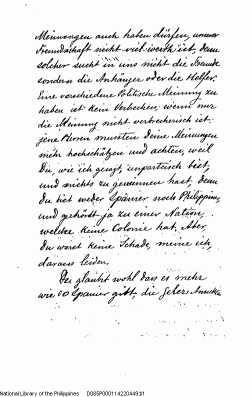 Meinungen auch haben dürfen, unsere
Freundschaft nicht viel werth ist, denn
solcher sucht in uns nicht die Freunde
sondern die Anhänger oder die Helfer.
Eine verschiedene Politische Meinung zu
haben ist kein Verbrechen, wenn nur
die Meinung nicht verbrecherisch ist.
jene Herren mussten Deine Meinungen
mehr hochschätzen und achten weil
Du, wie ich gesagt, unparteisch bist,
und nichts zu gewinnen hast, denn
Du bist weder Spanier noch Philippiner,
und gehörst ja zu einer Nation,
welche keine Colonie hat. Aber
Du wirst keine Schade, meine ich,
daraus leiden.
Du glaubst wohl dass es mehr
wie 60 Spanier gibt, die
National Library of the Philippines D085P00011422044931